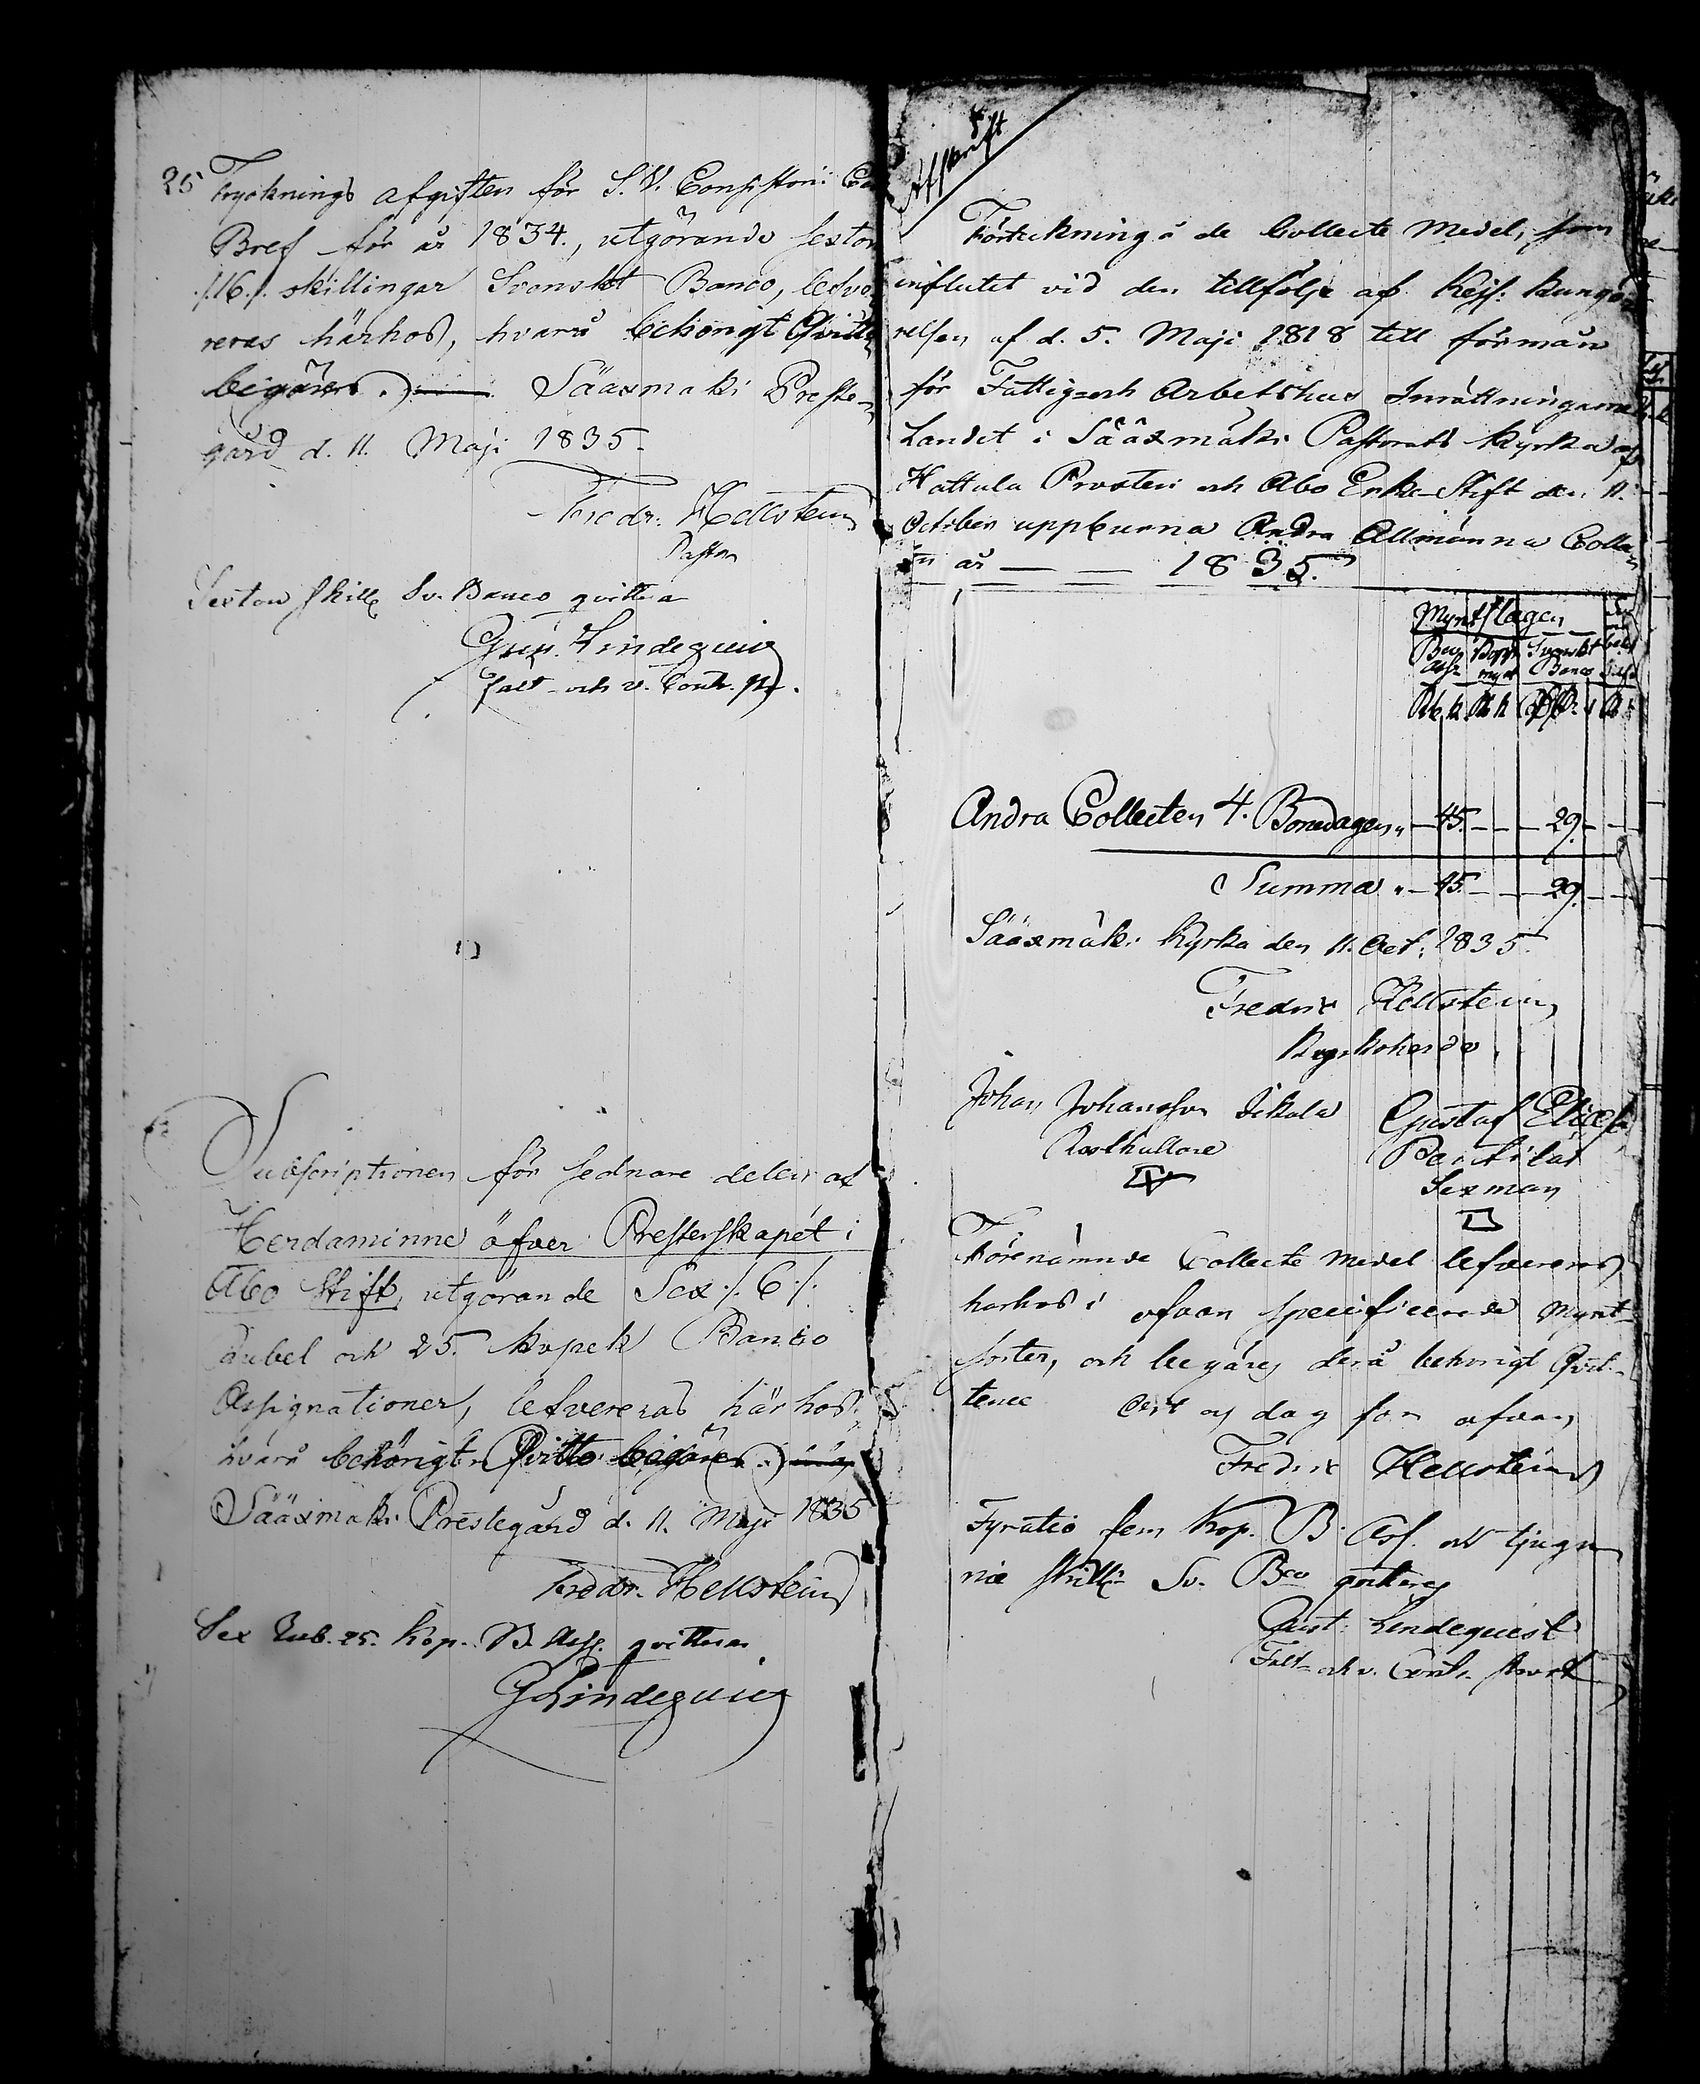 25
Trycknings afgiften för S. V. Consistorii
Bref för år 1834., utgörande sexton
./.16./. skillingar Svenskt Banco, lefve-
reras härhos, hvarå behörigt Qvitto
begäres. Sääxmäki Preste-
gård d. 11. Maji 1835.
Fredr. Hellstein
Pastor
Sexton skill. Sv. Banco qvitteras
Gust. Lindequist
Subscriptionen för sednare delen af
Herdaminne öfver Presterskapet i
Åbo Stift, utgörande Sex ./.6./.
Rubel och 25. kopek Banco
Assignationer, lefvereras härhos,
hvarå behörigt Qvitto begäres.
Sääxmäki Prestegård d. 11. Maji 1835
Fredr. Hellstein
Sex Rub. 25. Kop. B. Ass. qvitteras
G Lindequist
Afskrift
Förteckning å de Collecte Medel, som
influtit vid den tillfölje af Kejs: Kungö-
relsen af d. 5. Maji 1818 till förmån
för Fattig och Arbetshus Inrättningarne
Landet i Sääxmäki Pastorats Kyrka af
Hattula Prosteri och Åbo Erke-Stift den 11.
October uppburna Andra Allmänna Colle-
ten år 1835.
Myntslagen
Svenskt
Banco
Andra Collecten 4. Bönedagen „ — 45. — — — 29. —
Summa „ — 45. — — — 29. —
Sääxmäki Kyrka den 11. Oct: 1835.
Fredrik Hellstein
Kyrkoherde
Johan Johansson
Rusthållare
Gustaf
Sexman
Förenämnde Collecte Medel lefvereras
härhos i ofvan specificerade Mynt-
sorter, och begäres derå behörigt Qvit-
tence År och dag som ofvan
Fredrik Hellstein
Fyratio fem Kop. B. Ass. och tjugu
nio skill: Sv. Bco qvitteras
Gust: Lindequist